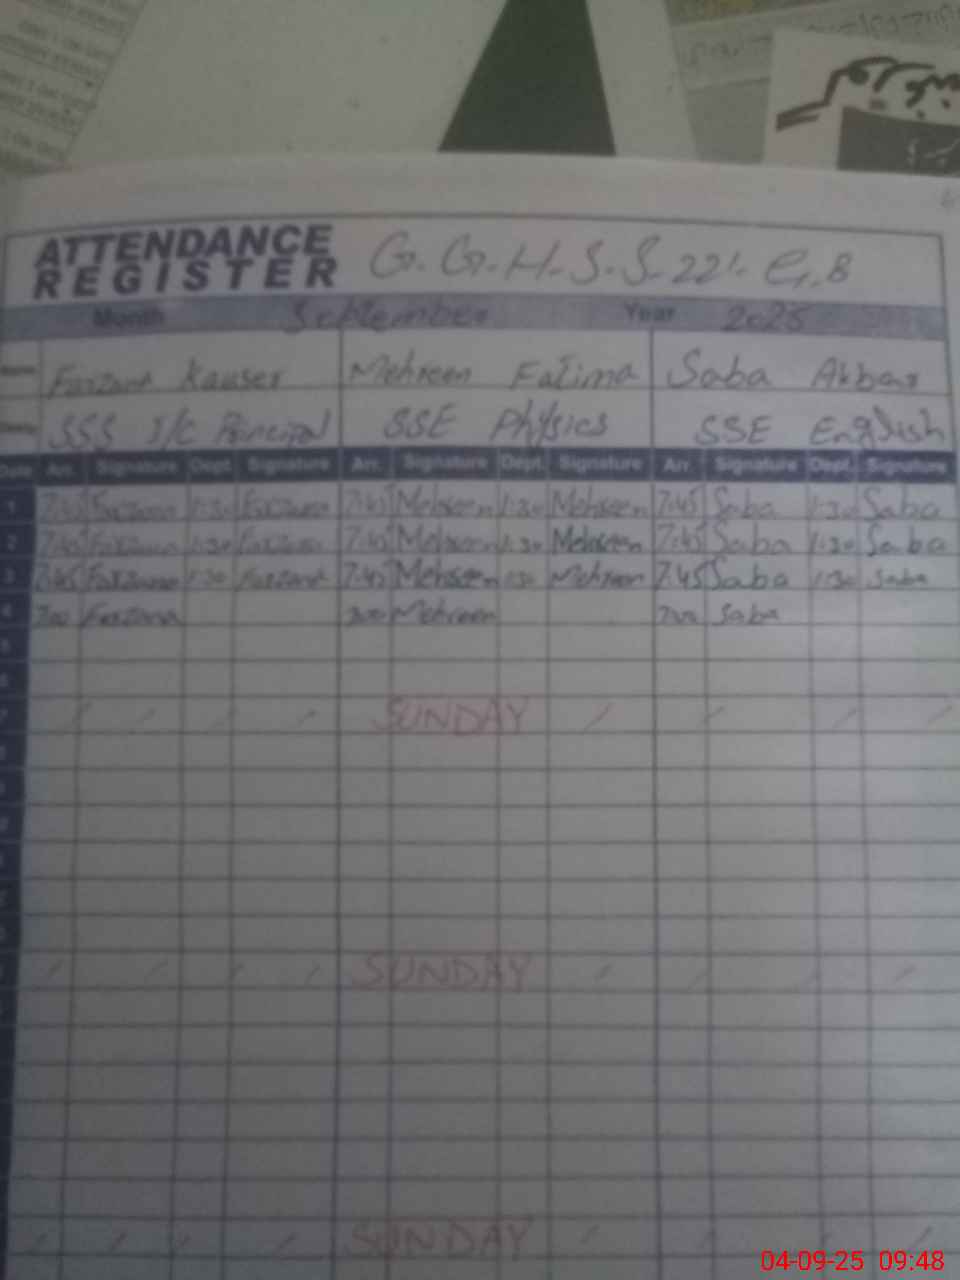 ATTENDANCE
REGISTER G.G.H.S.S. 221. E.B
Month September Year 2025
Name Farzana Kauser Mehreen Fatima Saba Akbar
SSS I/C Principal SSE Physics SSE English
Date Arr. Signature Dept. Signature Arr. Signature Dept. Signature Arr. Signature Dept. Signature
1 7:45 Farzana 1:30 Farzana 7:45 Mehreen 1:30 Mehreen 7:45 Saba 1:30 Saba
2 7:45 Farzana 1:30 Farzana 7:45 Mehreen 1:30 Mehreen 7:45 Saba 1:30 Saba
3 7:45 Farzana 1:30 Farzana 7:45 Mehreen 1:30 Mehreen 7:45 Saba 1:30 Saba
4 7:00 Farzana 7:00 Mehreen 7:00 Saba
5
6
7 SUNDAY
SUNDAY
SUNDAY
04-09-25 09:48